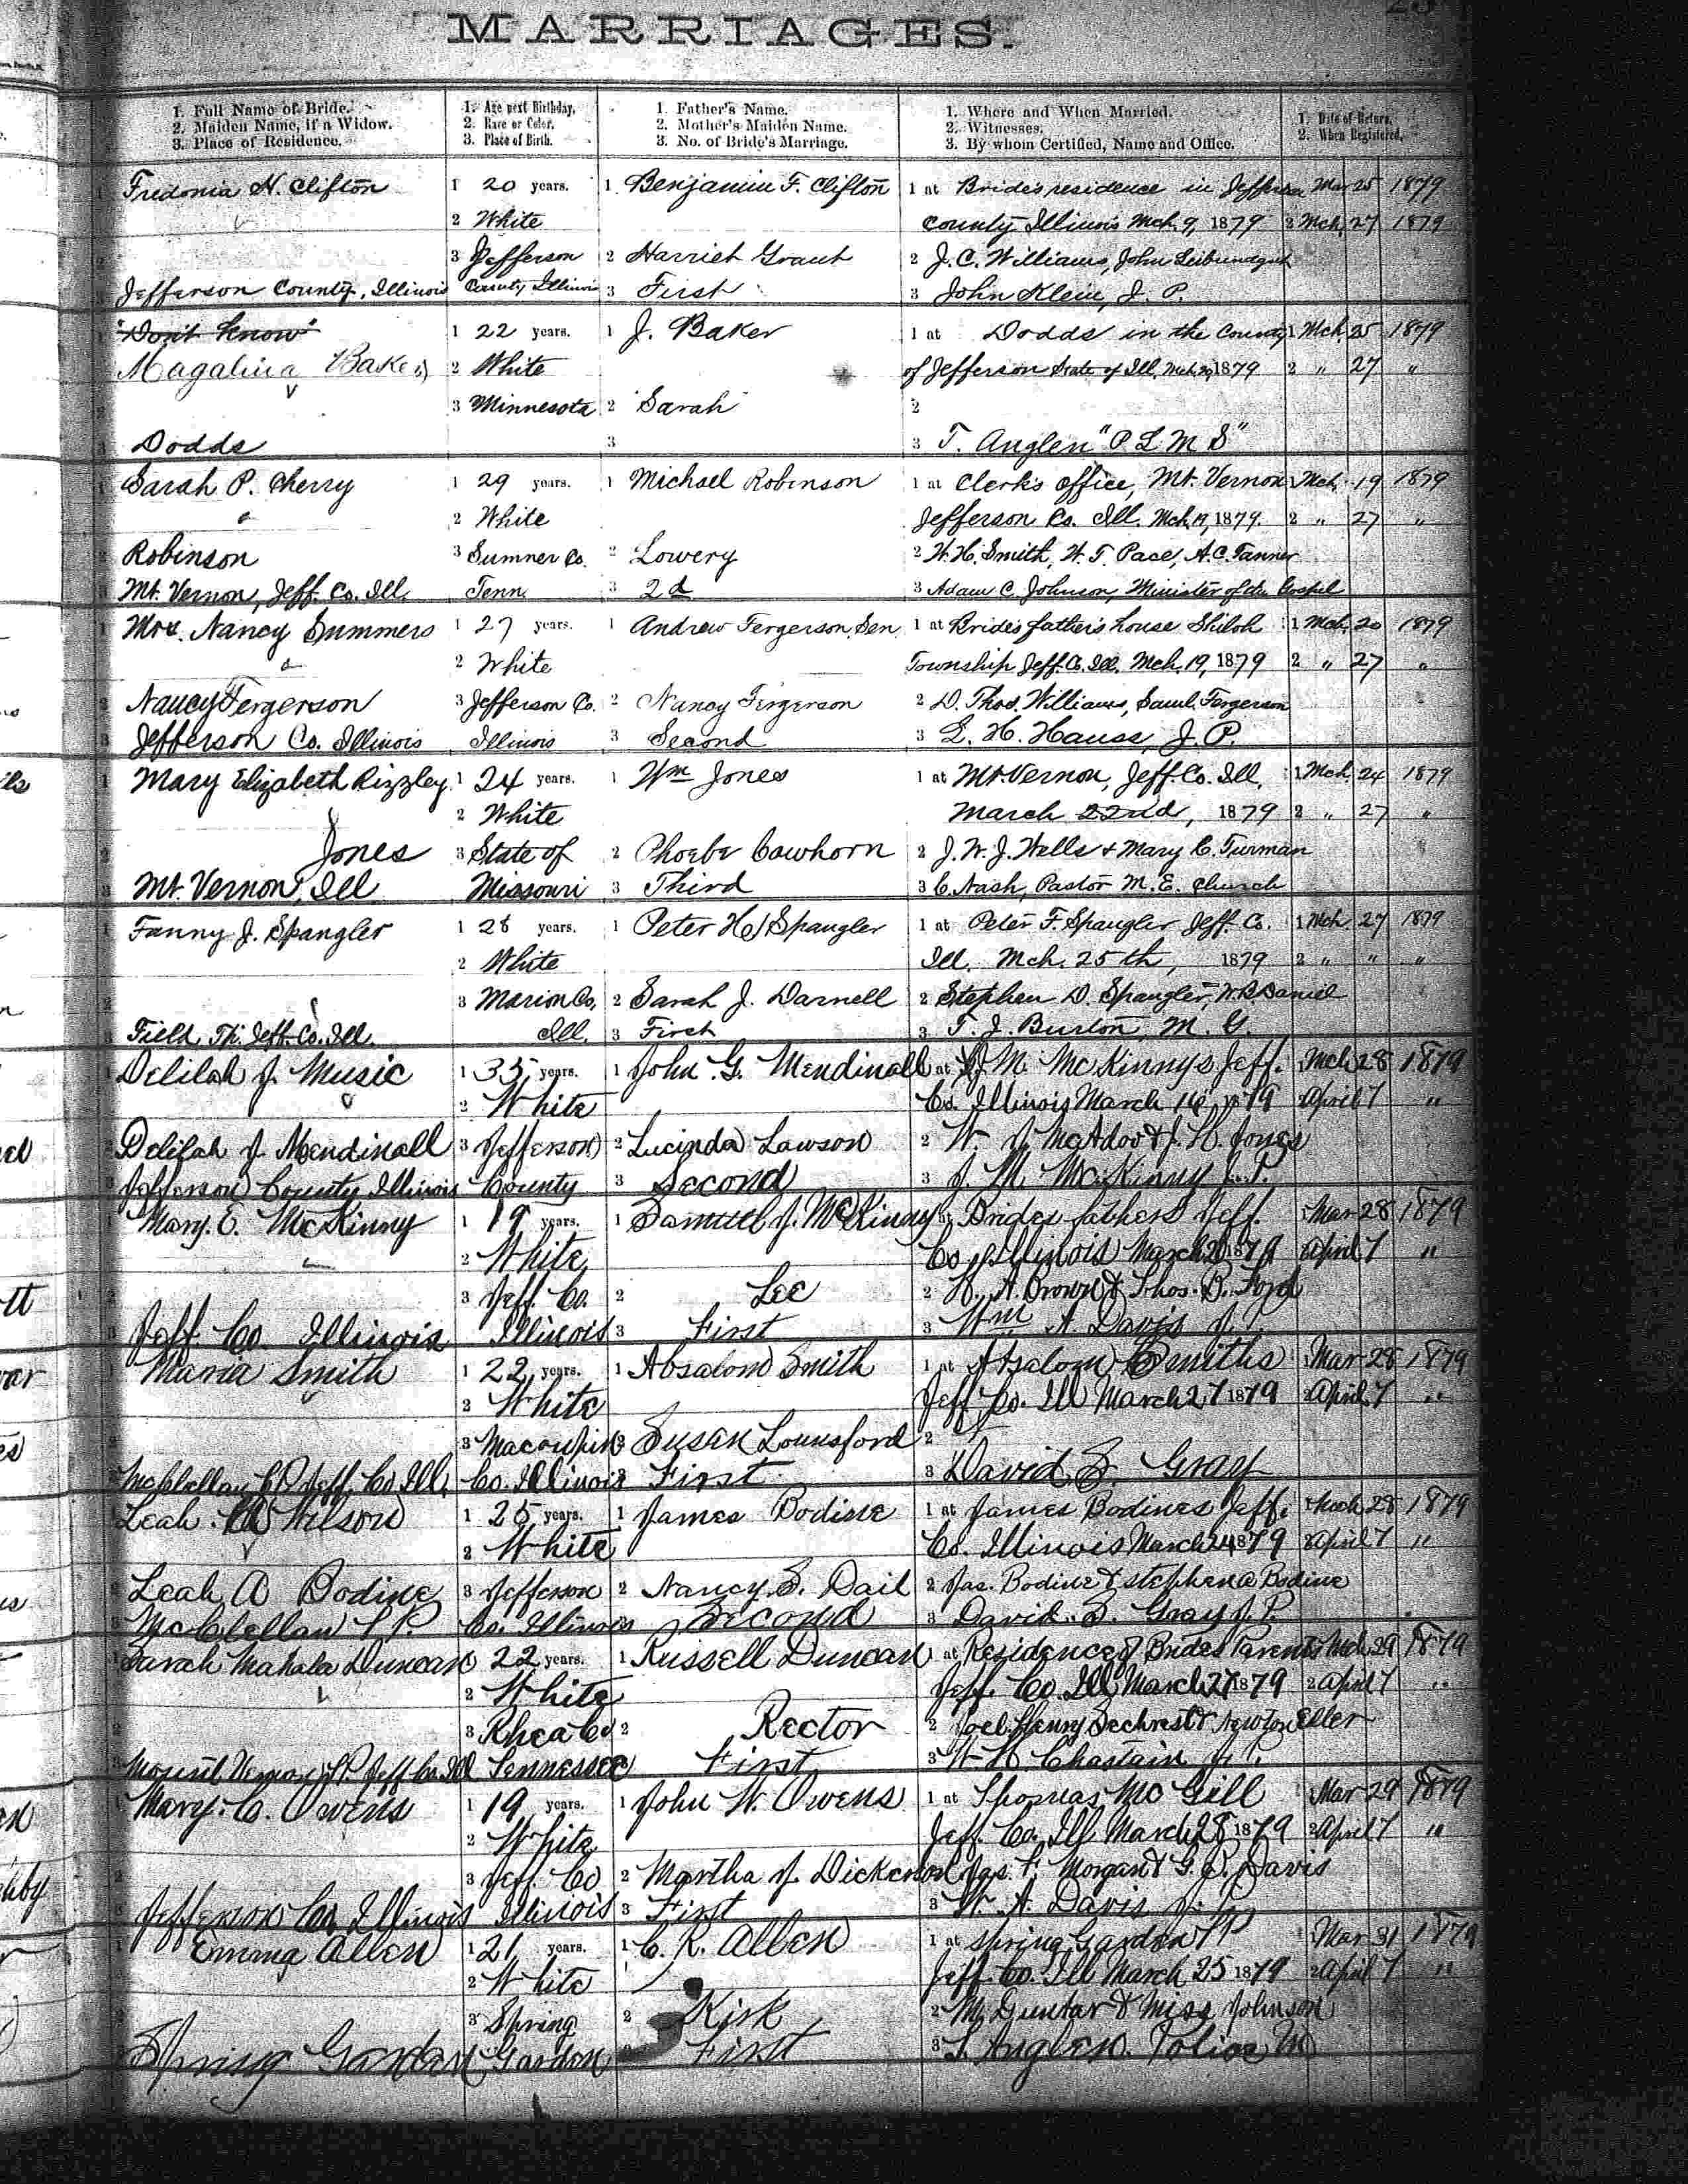 MARRIAGES.
1. Full Name of Bride.
2. Maiden Name, if a Widow.
3. Place of Residence.
1. Age next Birthday.
2. Race or Color.
3. Place of Birth.
1. Father's Name.
2. Mother's Maiden Name.
3. No. of Bride's Marriage.
1. Where and When Married.
2. Witnesses.
3. By whom Certified, Name and Office.
1. Date of Return.
2. When Registered.
1 Fredonia N. Clifton 1 20 years. 1 Benjamin F. Clifton 1 at Bride's residence in Jefferson 1 Mar 25 1879
2 White County Illinois Mch. 9, 1879 2 Mch. 27 1879
2 3 Jefferson 2 Harriet Grant 2 J. C. Williams, John Leibundgut
3 Jefferson County, Illinois County Illinois 3 First 3 John Klein, J. P.
1 "Don't know" 1 22 years. 1 J. Baker 1 at Dodds in the County 1 Mch. 25 1879
Magalina Baker 2 White of Jefferson State of Ill. Mch. 20, 1879 2 " 27 "
2 3 Minnesota 2 "Sarah" 2
3 Dodds 3 3 T. Anglen "P. L. M. S"
1 Sarah P. Cherry 1 29 years. 1 Michael Robinson 1 at Clerk's office, Mt. Vernon 1 Mch. 19 1879
2 White Jefferson Co. Ill. Mch. 19, 1879. 2 " 27 "
2 Robinson 3 Sumner Co. 2 Lowery 2 W. H. Smith, W. T. Pace, A. C. Tanner
3 Mt. Vernon, Jeff. Co. Ill. Tenn. 3 2d 3 Adam C. Johnson, Minister of the Gospel
1 Mrs. Nancy Summers 1 27 years. 1 Andrew Fergerson, Sen 1 at Bride's father's house Shiloh 1 Mch. 20 1879
2 White Township Jeff. C. Ill. Mch. 19, 1879 2 " 27 "
2 Nancy Fergerson 3 Jefferson Co. 2 Nancy Fergerson 2 D. Thos. Williams, Saml. Fergerson
3 Jefferson Co. Illinois Illinois 3 Second 3 L. H. Hauss, J. P.
1 Mary Elizabeth Rizzley 1 24 years. 1 Wm Jones 1 at Mt. Vernon, Jeff. Co. Ill. 1 Mch. 24 1879
2 White March 22nd, 1879 2 " 27 "
2 Jones 3 State of 2 Phoebe Cawhorn 2 J. W. J. Wells & Mary C. Turman
3 Mt. Vernon, Ill Missouri 3 Third 3 C. Nash, Pastor M. E. Church
1 Fanny J. Spangler 1 28 years. 1 Peter H. Spangler 1 at Peter F. Spangler Jeff. Co. 1 Mch. 27 1879
2 White Ill. Mch. 25th, 1879 2 " " "
2 3 Marion Co, 2 Sarah J. Darnell 2 Stephen D. Spangler, W. B. Daniel
3 Field, Tp. Jeff. Co. Ill. Ill. 3 First 3 T. J. Burton, M. G.
1 Delilah J. Music 1 35 years. 1 John G. Mendinall 1 at J. M. McKinnys Jeff. 1 Mch 28 1879
2 White Co. Illinois March 1879 2 April 7 "
2 Delilah J. Mendinall 3 Jefferson 2 Lucinda Lawson 2 W. J. McAdoo & J. H. Jones
3 Jefferson County Illinois County 3 Second 3 J. M. McKinny J. P.
1 Mary. E. McKinny 1 19 years. 1 Samuel J. McKinny 1 at Brides fathers Jeff. 1 Mar 28 1879
2 White Co. Illinois March 20 1879 2 April 7 "
2 3 Jeff. Co. 2 Lee 2 H. A. Brown & Thos. B. Ford
3 Jeff. Co. Illinois Illinois 3 First 3 Wm A. Davis J. P.
1 Maria Smith 1 22 years. 1 Absalom Smith 1 at Absalom Smiths 1 Mar 28 1879
2 White Jeff. Co. Ill March 27 1879 2 April 7 "
2 3 Macoupin 2 Susan Lounsford 2
3 McClellan T. P. Jeff. Co. Ill. Co. Illinois 3 First 3 David S. Gray
1 Leah. A. Wilson 1 25 years. 1 James Bodine 1 at James Bodines Jeff. 1 Mch 28 1879
2 White Co. Illinois March 24 1879 2 April 7 "
2 Leah A Bodine 3 Jefferson 2 Nancy E. Dail 2 Jas. Bodine & Stephen A Bodine
3 McClellan T P. Co. Illinois Second 3 David. S. Gray J. P.
1 Sarah Mahala Duncan 22 years. 1 Russell Duncan 1 at Residence of Brides Parents 1 Mch 29 1879
2 White Jeff. Co. Ill March 27 1879 2 April 7 "
2 3 Rhea Co 2 Rector 2 Joel Henry Sechrest & Newton Eller
3 Mount Vernon T. P. Jeff Co Ill Tennessee 3 First 3 W. H. Chastain J. P.
1 Mary. C. Owens 1 19 years. 1 John W. Owens 1 at Thomas McGill 1 Mar 29 1879
2 White Jeff. Co. Ill March 28 1879 2 April 7 "
2 3 Jeff. Co 2 Martha J. Dickerson Jas. F. Morgan & G. P. Davis
3 Jefferson Co. Illinois Illinois 3 First 3 W. A. Davis J. P.
1 Emma Allen 1 21 years. 1 C. R. Allen 1 at Spring Gardon T P 1 Mar 31 1879
2 White Jeff. Co. Ill March 25 1879 2 April 7 "
2 3 Spring 2 Kirk 2 M. Guntar & Miss Johnson
Spring Garden Gardon First 3 T. Anglen. Police M